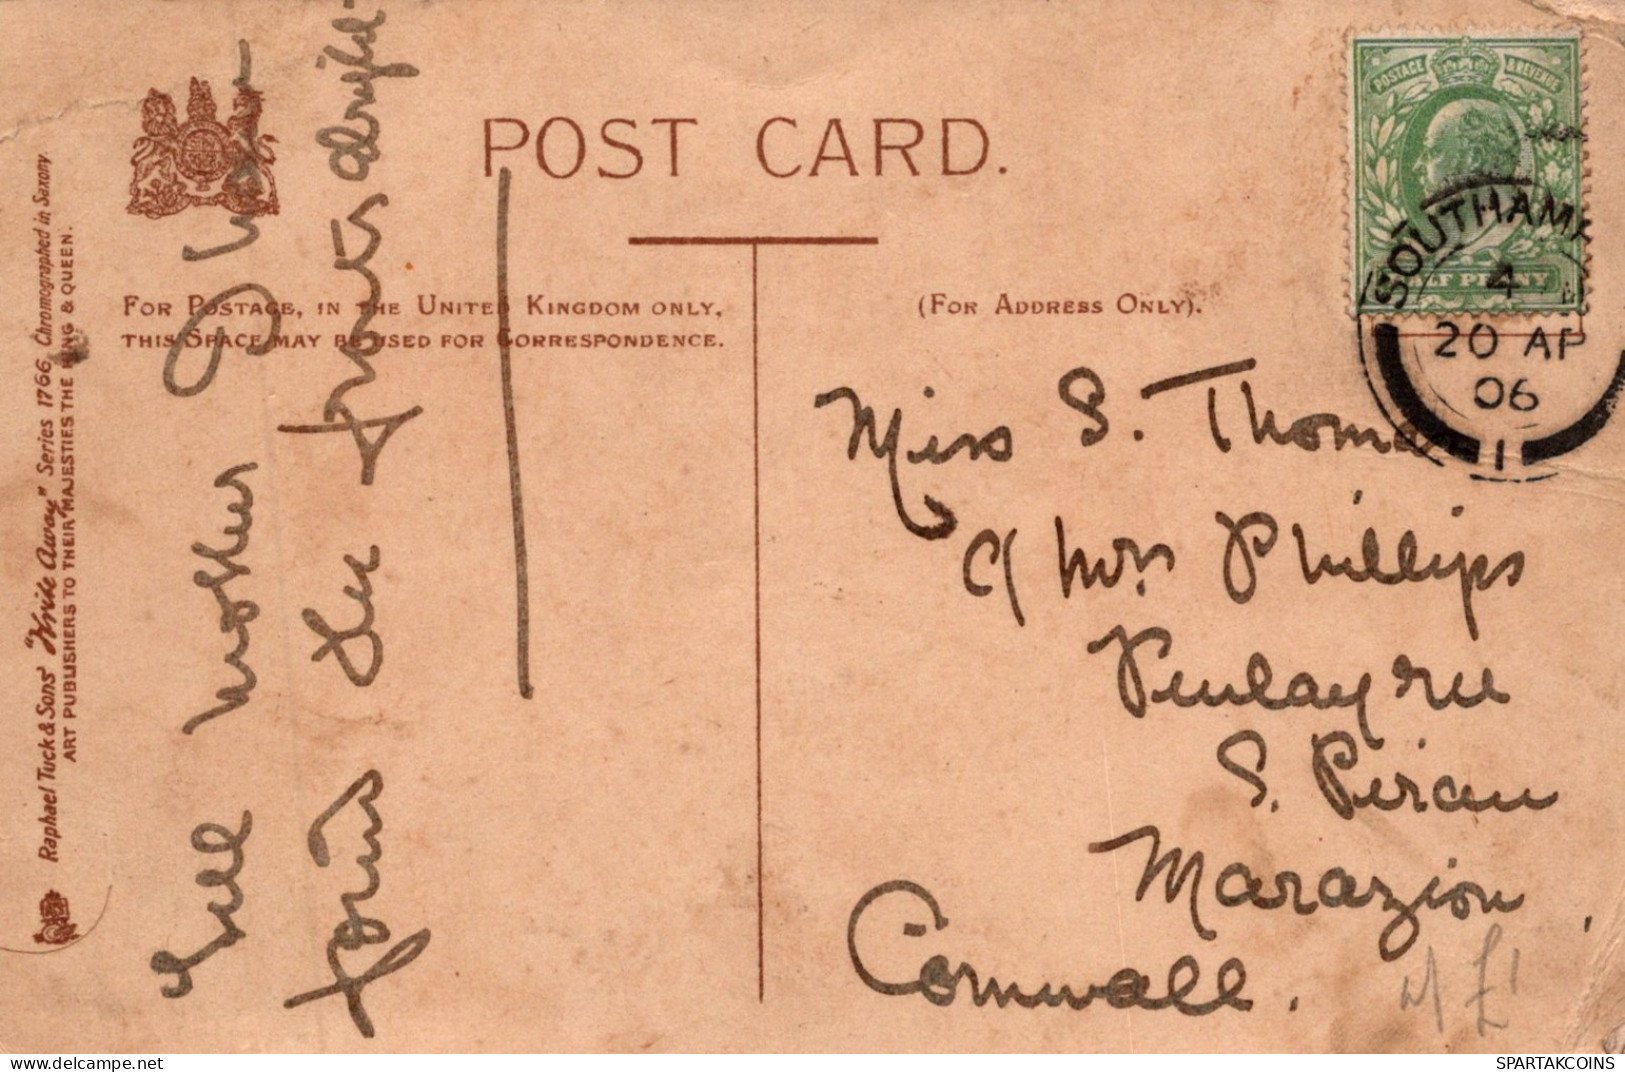 POST CARD.
FOR POSTAGE, IN THE UNITED KINGDOM ONLY,
THIS SPACE MAY BE USED FOR CORRESPONDENCE.
(FOR ADDRESS ONLY).
Raphael Tuck & Sons' "Write Away" Series 1766. Chromographed in Saxony.
ART PUBLISHERS TO THEIR MAJESTIES THE KING & QUEEN.
POSTAGE & REVENUE
SOUTHAMP
4
20 AP
06
1
Tell mother
Miss S. Thomas
c/ Mrs Phillips
S. Piran
Marazion,
Cornwall.
£1
SPARTAKCOINS